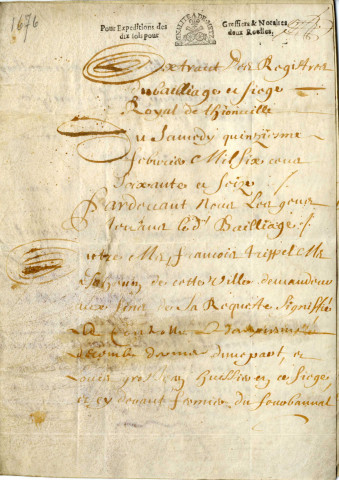 1676
Pour Expeditions des
dix sols pour
GNRALITÉ DE METZ
Greffiers & Notaires,
deux Roolles.
Extraict des Registres
du bailliage et siege
Royal de thionville
Du Samedy quinziesme
febvrier Mil six cens
Soixante et Seize /.
Pardevant Nous Les gens
tenans led. Bailliage /.
Entre Me francois
de cette Ville demandeur
aux fins de Sa Requeste Signiffiée
decembre dernier d'une part, et
Louis huissier en ce siege,
et cy devant fermier du four bannal